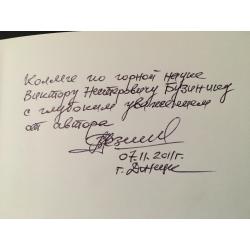 Коллеге по горной науке
Виктору Нестеровичу Бузиницу
с глубоким уважением
от автора
07.11.2011г.
г. Донецк